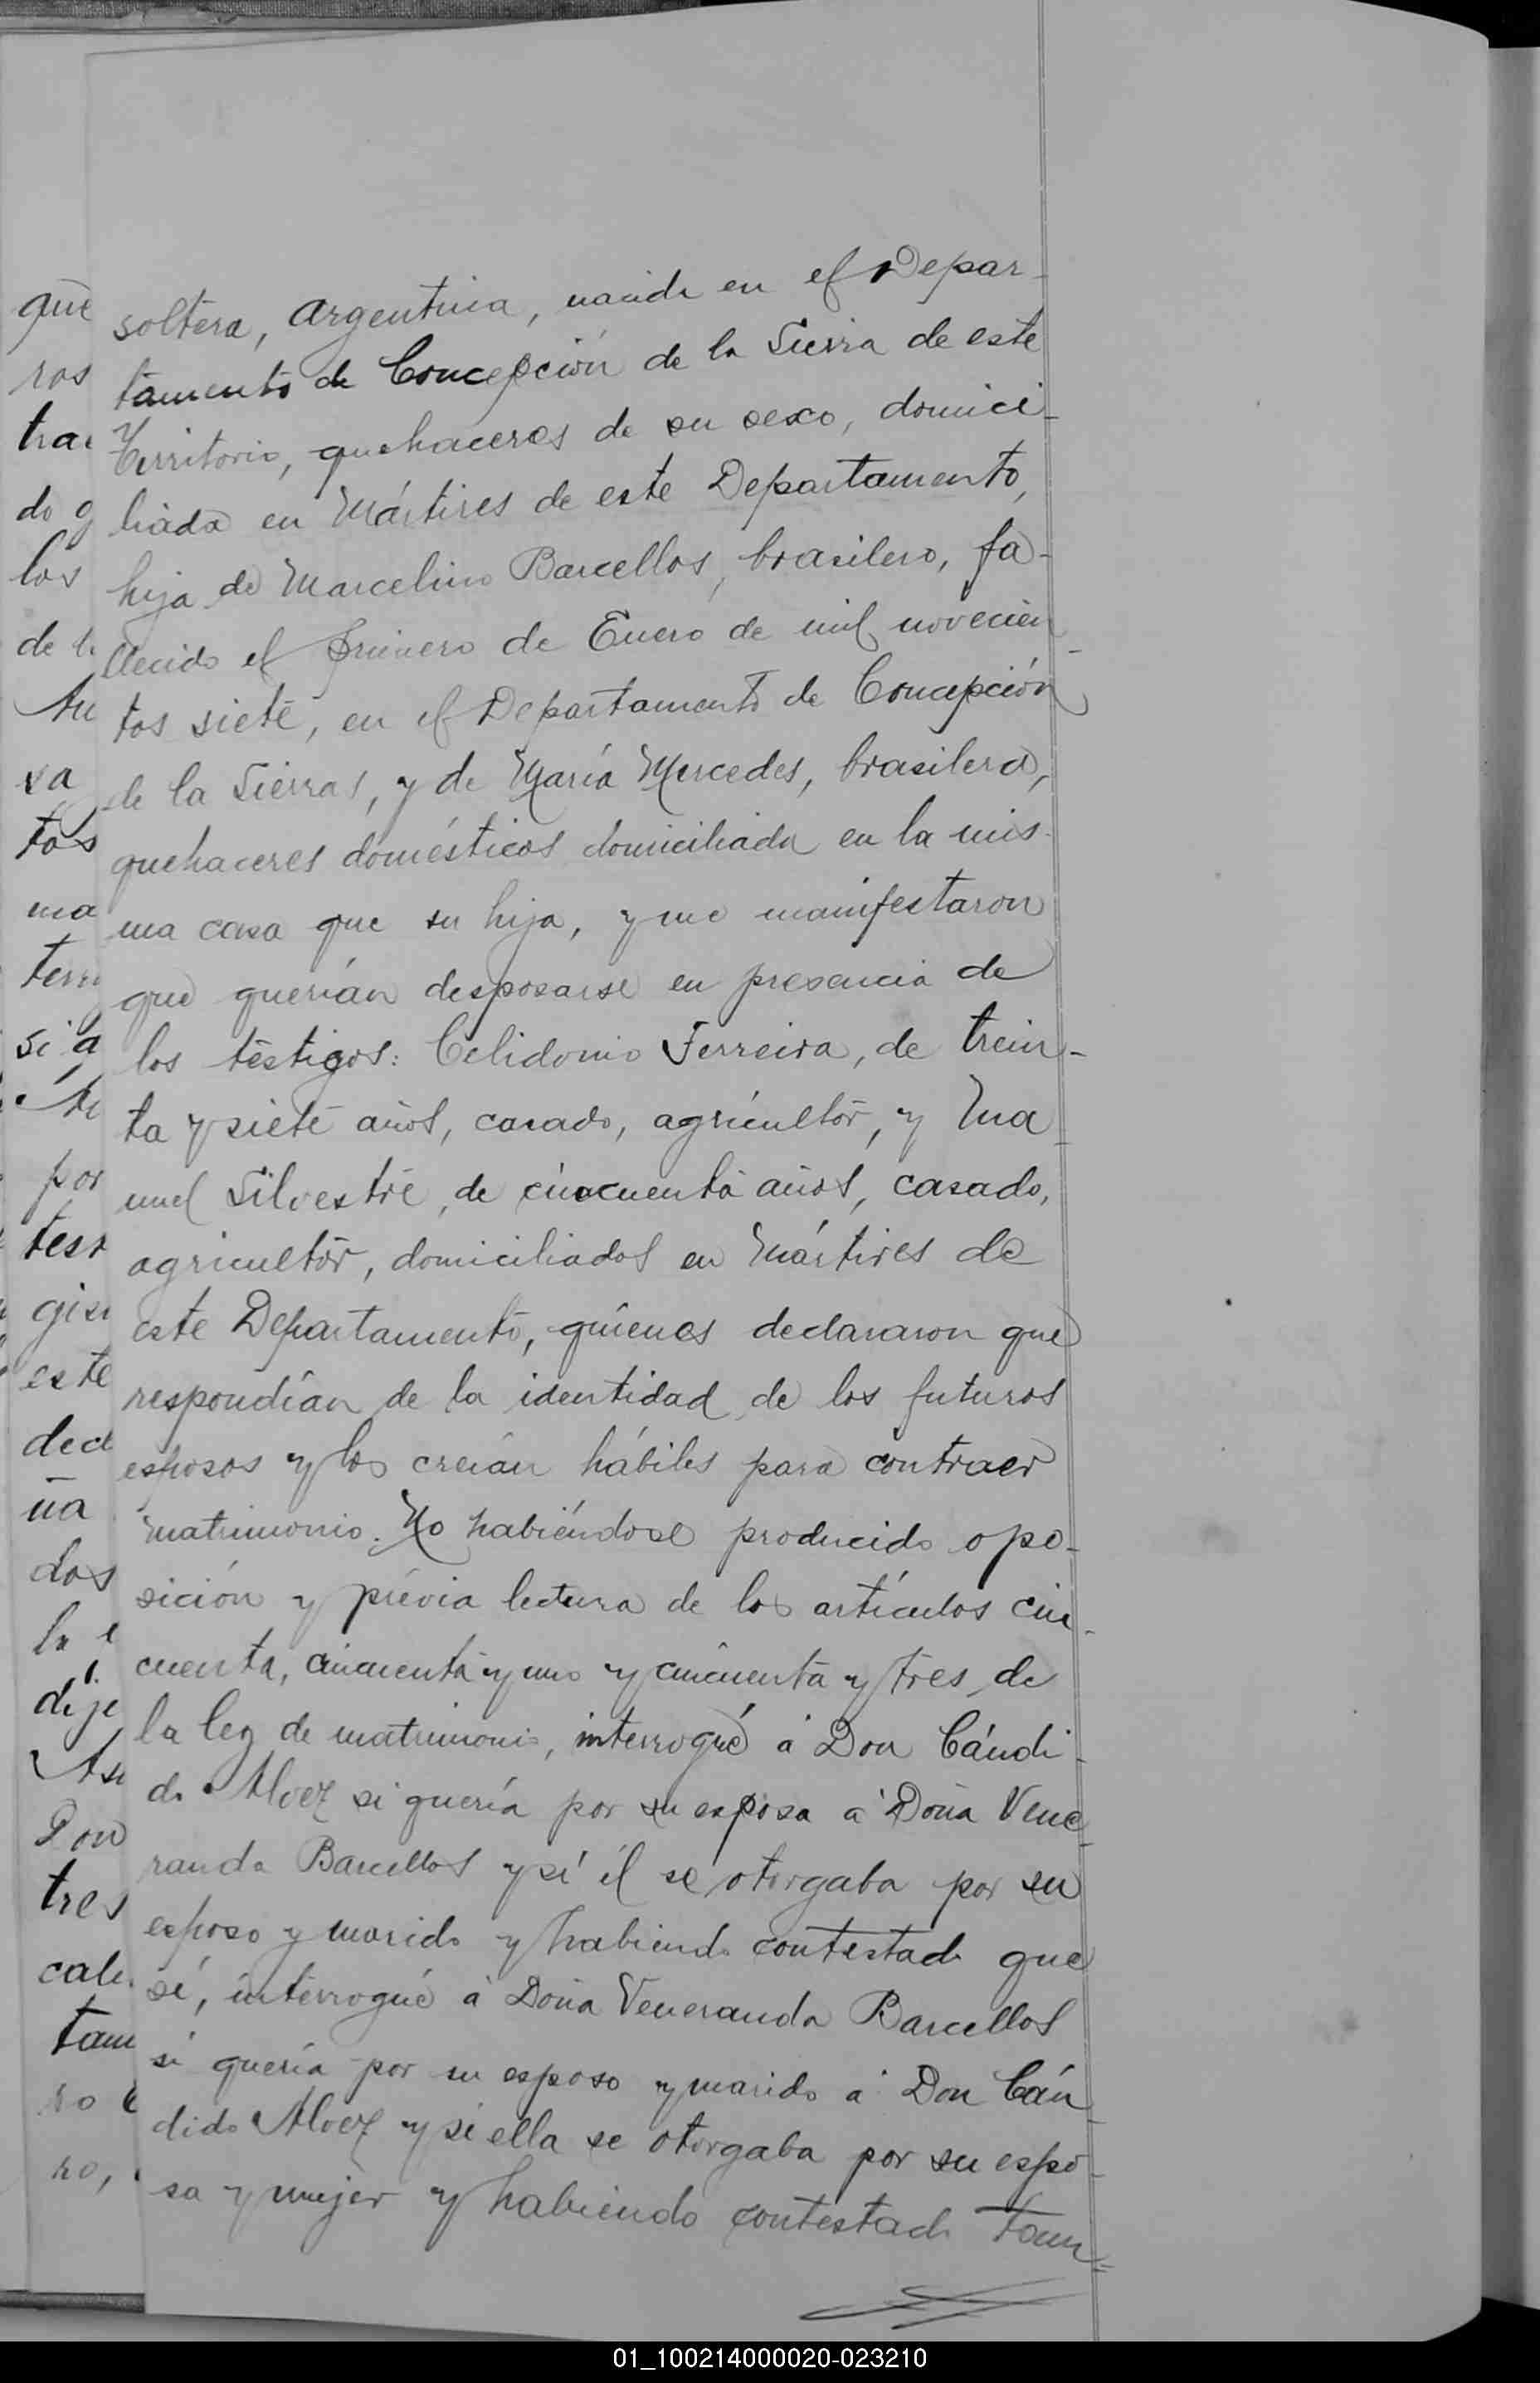 soltera, Argentina, nacida en el Depar-
tamento de Concepción de la Sierra de este
Territorio, quehaceres de su sexo, domici-
liada en Mártires de este Departamento,
hija de Marcelino Barcellos, brasilero, fa-
llecido el primero de Enero de mil novecien-
tos siete, en el Departamento de Concepción
de la Sierras, y de María Mercedes, brasilera,
quehaceres domésticos domiciliada en la mis-
ma casa que su hija, y me manifestaron
que querían desposarse en presencia de
los testigos: Celidonio Ferreira, de trein-
ta y siete años, casado, agricultor, y Ma-
nuel Silvestre, de cincuenta años, casado,
agricultor, domiciliados en Mártires de
este Departamento, quienes declararon que
respondían de la identidad de los futuros
esposos y los creían hábiles para contraer
matrimonio. No habiéndose producido opo-
sición y prévia lectura de los artículos cin-
cuenta, cincuenta y uno y cincuenta y tres de
la ley de matrimonio, interrogué á Don Cándi-
do Alvez si quería por su esposa á Doña Vene-
randa Barcellos y sí él se otorgaba por su
esposo y marido y habiendo contestado que
sí, interrogué á Doña Veneranda Barcellos
si quería por su esposo y marido á Don Cán-
dido Alvez y si ella se otorgaba por su espo-
sa y mujer y habiendo contestado tam=
que
ros
do
los
de
va
tos
ma
si
por
este
dos
dije
Don
tres
01_100214000020-023210